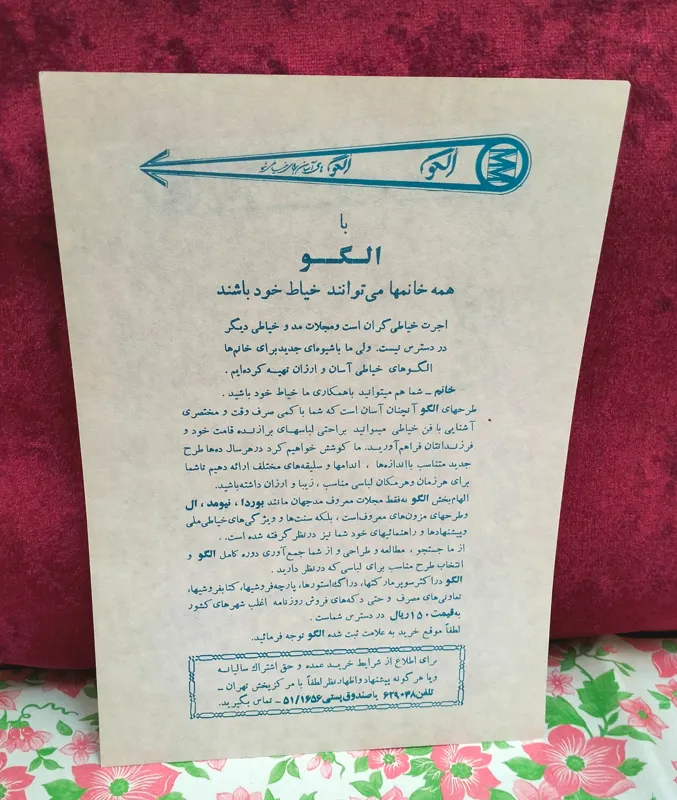 الگو الگو
با
الگو
همه خانمها می‌توانند خیاط خود باشند
اجرت خیاطی گران است ومجلات مد و خیاطی دیگر
در دسترس نیست. ولی ما باشیوه‌ای جدید برای خانم‌ها
الگوهای خیاطی آسان و ارزان تهیه کرده‌ایم.
خانم ــ شما هم میتوانید باهمکاری ما خیاط خود باشید.
طرحهای الگو آنچنان آسان است که شما با کمی صرف وقت و مختصری
آشنایی با فن خیاطی میتوانید براحتی لباسهای برازنده قامت خود و
فرزندانتان فراهم‌آورید. ما کوشش خواهیم کرد درهرسال ده‌ها طرح
جدید متناسب بااندازه‌ها، اندامها و سلیقه‌های مختلف ارائه دهیم تاشما
برای هرزمان وهرمکان لباسی مناسب، زیبا و ارزان داشته‌باشید.
الهام‌بخش الگو نه‌فقط مجلات معروف مدجهان مانند بوردا، نیومد، ال
وطرحهای مزون‌های معروف‌است، بلکه سنت‌ها و ویژگی‌های‌خیاطی‌ملی
وپیشنهادها و راهنمائیهای خود شما نیز درنظر گرفته شده است.
از ما جستجو، مطالعه و طراحی و از شما جمع‌آوری دوره کامل الگو و
انتخاب طرح مناسب برای لباسی که درنظر دارید.
الگو دراکثر سوپرمارکتها، دراگ‌استورها، پارچه‌فروشیها، کتابفروشیها،
تعاونی‌های مصرف و حتی دکه‌های فروش روزنامه اغلب شهرهای کشور
به‌قیمت ۱۵۰ریال در دسترس شماست.
لطفاً موقع خرید به علامت ثبت شده الگو توجه فرمائید.
برای اطلاع از شرایط خرید عمده و حق اشتراک سالیانه
ویا هرگونه پیشنهاد واظهارنظر لطفاً با مرکزپخش تهران ــ
تلفن ۶۲۹۰۴۸ یاصندوق‌پستی ۵۱/۱۶۵۶ ــ تماس بگیرید.